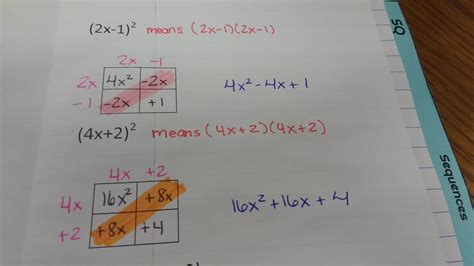 (2x-1)² means (2x-1)(2x-1)
2x -1
2x 4x² -2x
-1 -2x +1
4x²-4x+1
(4x+2)² means (4x+2)(4x+2)
4x +2
4x 16x² +8x
+2 +8x +4
16x²+16x+4
SQ
Sequences